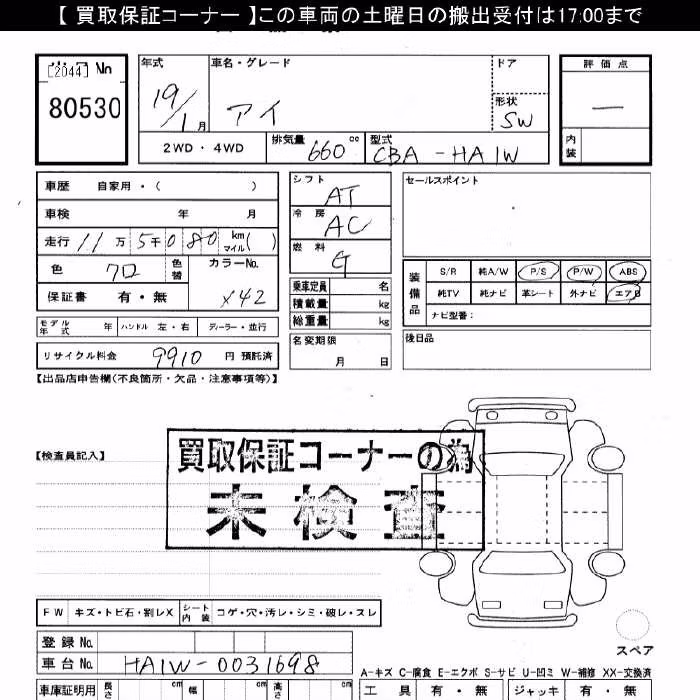 【 買取保証コーナー 】この車両の土曜日の搬出受付は17:00まで
[2044] No
80530
年式 19/1月
車名・グレード アイ
ドア
形状 SW
評価点 —
内装
2WD・4WD
排気量 660 cc
型式 CBA-HA1W
車歴 自家用・( )
車検 年 月
走行 11万 5千 080 km マイル( )
色 クロ 色替
カラーNo. X42
保証書 有・無
モデル年式 年 ハンドル 左・右 ディーラー・並行
リサイクル料金 9910 円 預託済
シフト AT
冷房 AC
燃料 G
乗車定員 名
積載量 kg
総重量 kg
名変期限
月 日
セールスポイント
装備品
S/R 純A/W P/S P/W ABS
純TV 純ナビ 革シート 外ナビ エアB
ナビ型番:
後日品
【出品店申告欄(不良箇所・欠品・注意事項等)】
【検査員記入】
買取保証コーナーの為
未検査
FW キズ・トビ石・割レX シート内装 コゲ・穴・汚レ・シミ・破レ・スレ
登録No.
車台No. HA1W-0031698
スペア
A-キズ C-腐食 E-エクボ S-サビ U-凹ミ W-補修 XX-交換済
車庫証明用 長さ cm 幅 cm 高さ cm
工具 有・無 ジャッキ 有・無